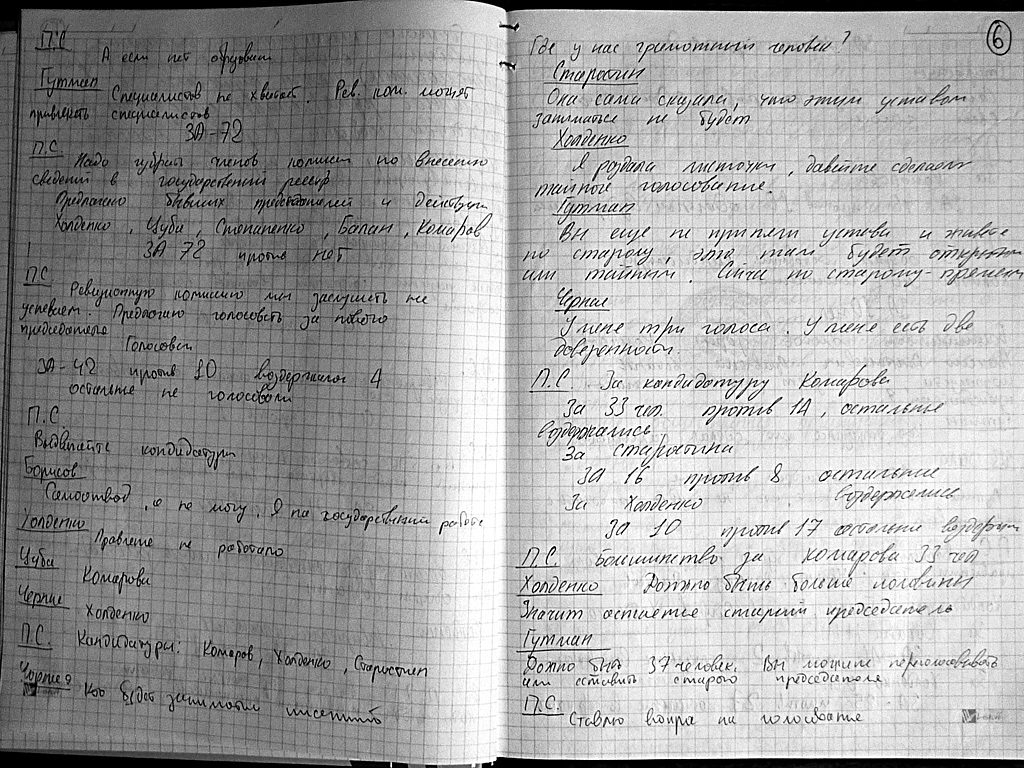 П.С
А если нет
Гутман
Специалистов не хватает. Рев. ком. может
привлекать специалистов
ЗА - 72
П.С.
Надо избрать членов комиссии по внесению
сведений в государственный реестр
Предложено бывших председателей и действующ
Холденко, Цуба, Степаненко, Балан, Комаров
ЗА 72 против нет
ПС
Ревизионную комиссию мы заслушать не
успеваем. Предлагаю голосовать за нового
председателя
Голосовали
ЗА - 42 против 10 воздержались 4
остальные не голосовали
П.С.
Выдвигайте кандидатуры
Борисов
Самоотвод, я не могу. Я на государственной работе
Холденко
Правление не работало
Цуба
Комарова
Черние
Холденко
П.С. Кандидатуры: Комаров, Холденко, Старостин
Кто будет заниматься
6
Где у нас грамотный человек?
Старостин
Она сама сказала, что этим уставом
заниматься не будет
Холденко
Я раздала листочки, давайте сделаем
тайное голосование.
Гутман
Вы еще не приняли устава и живете
по старому, это там будет открытым
или тайным. Сейчас по старому - прямым
У меня три голоса. У меня есть две
доверенности.
П.С. За кандидатуру Комарова
За 33 чел против 14, остальные
воздержались
За Старостина
ЗА 16 против 8 остальные
воздержались
За Холденко
ЗА 10 против 17 остальные воздержали
П.С. Большинство за Комарова 33 чел
Холденко Должно быть больше половины
Значит остается старый председатель
Гутман
Должно быть 37 человек. Вы можете переголосовать
или оставить старого председателя
П.С.
Ставлю вопрос на голосование